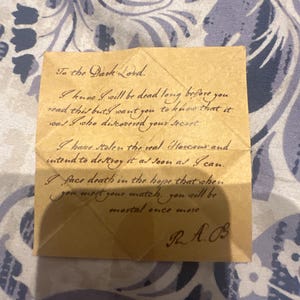 To the Dark Lord.
I know I will be dead long before you
read this but I want you to know that it
was I who discovered your secret
I have stolen the real Horcrux and
intend to destroy it as soon as I can.
I face death in the hope that when
you meet your match you will be
mortal once more
R. A. B